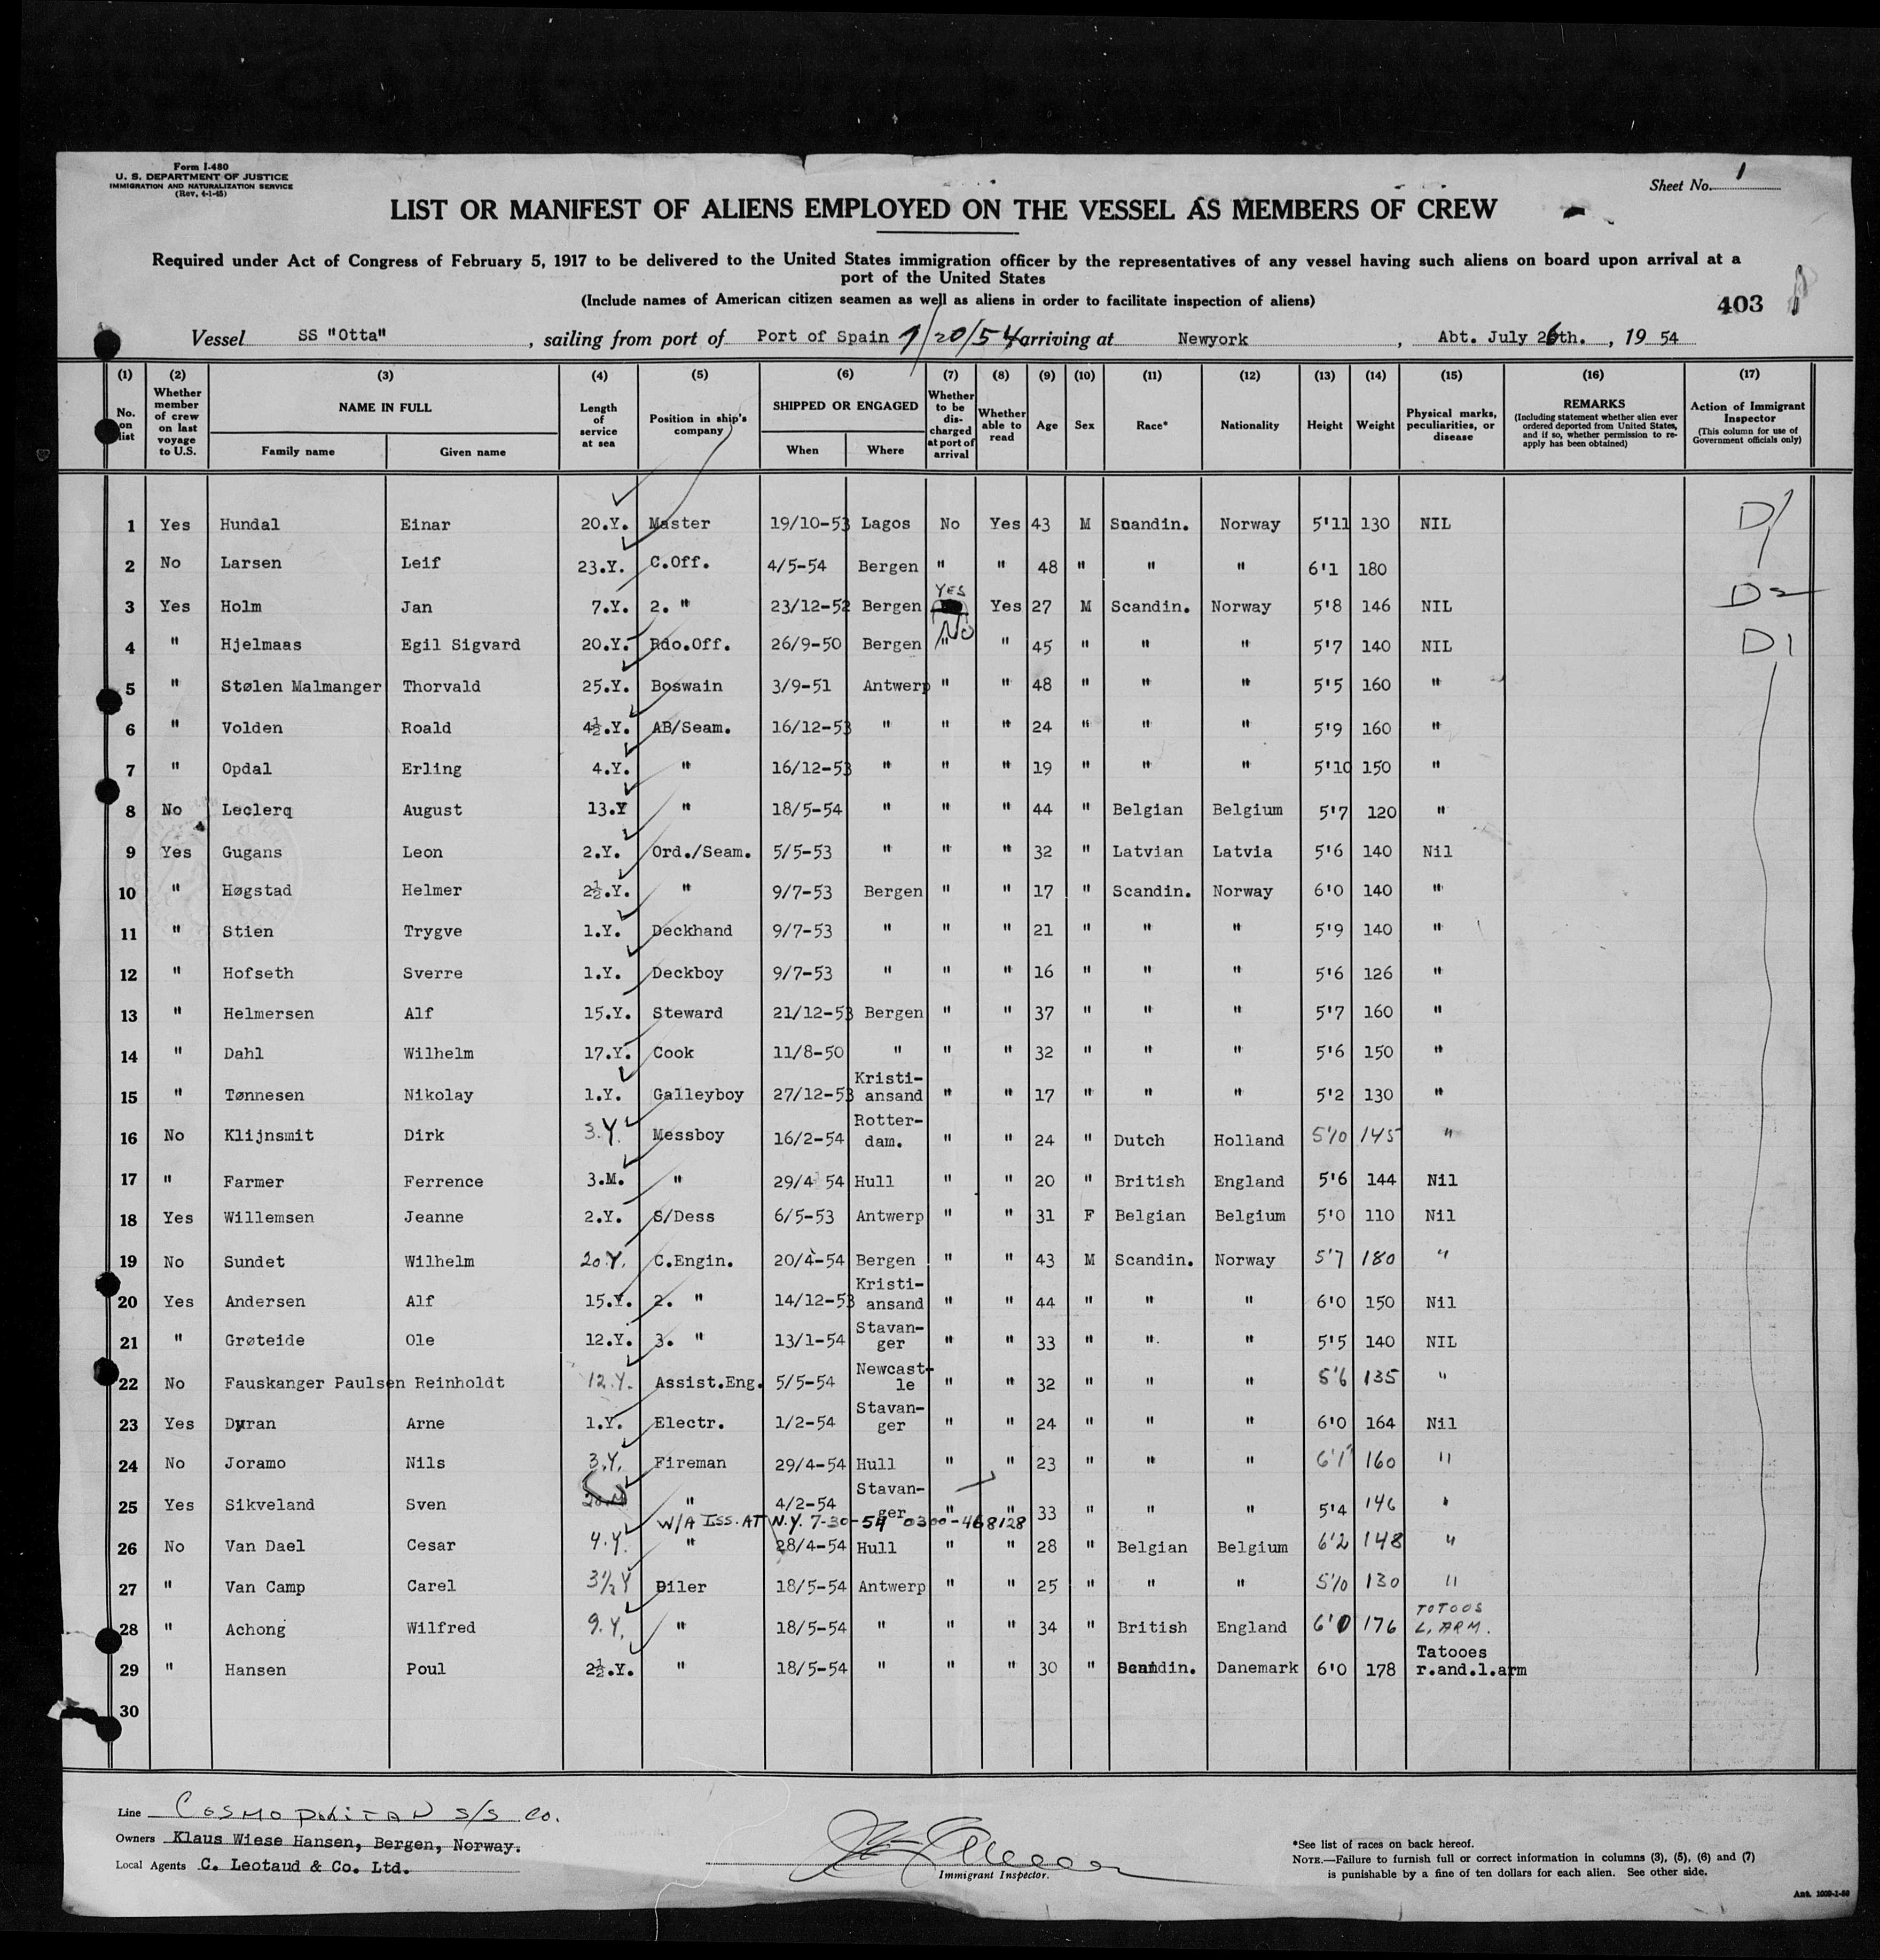 Form I-480
U. S. DEPARTMENT OF JUSTICE
IMMIGRATION AND NATURALIZATION SERVICE
(Rev. 4-1-45)
Sheet No. 1
LIST OR MANIFEST OF ALIENS EMPLOYED ON THE VESSEL AS MEMBERS OF CREW
Required under Act of Congress of February 5, 1917 to be delivered to the United States immigration officer by the representatives of any vessel having such aliens on board upon arrival at a
port of the United States
(Include names of American citizen seamen as well as aliens in order to facilitate inspection of aliens)
403
Vessel SS "Otta", sailing from port of Port of Spain 7/20/54 arriving at Newyork, Abt. July 26th., 19 54
(1) No. on list (2) Whether member of crew on last voyage to U.S. (3) NAME IN FULL Family name Given name (4) Length of service at sea (5) Position in ship's company (6) SHIPPED OR ENGAGED When Where (7) Whether to be discharged at port of arrival (8) Whether able to read (9) Age (10) Sex (11) Race* (12) Nationality (13) Height (14) Weight (15) Physical marks, peculiarities, or disease (16) REMARKS (Including statement whether alien ever ordered deported from United States, and if so, whether permission to reapply has been obtained) (17) Action of Immigrant Inspector (This column for use of Government officials only)
1 Yes Hundal Einar 20.Y. Master 19/10-53 Lagos No Yes 43 M Scandin. Norway 5'11 130 NIL D1
2 No Larsen Leif 23.Y. C.Off. 4/5-54 Bergen " " 48 " " " 6'1 180
3 Yes Holm Jan 7.Y. 2. " 23/12-52 Bergen YES Yes 27 M Scandin. Norway 5'8 146 NIL D2
4 " Hjelmaas Egil Sigvard 20.Y. Rdo.Off. 26/9-50 Bergen No " " 45 " " " 5'7 140 NIL D1
5 " Stølen Malmanger Thorvald 25.Y. Boswain 3/9-51 Antwerp " " 48 " " " 5'5 160 "
6 " Volden Roald 4½.Y. AB/Seam. 16/12-53 " " " 24 " " " 5'9 160 "
7 " Opdal Erling 4.Y. " 16/12-53 " " " 19 " " " 5'10 150 "
8 No Leclerq August 13.Y " 18/5-54 " " " 44 " Belgian Belgium 5'7 120 "
9 Yes Gugans Leon 2.Y. Ord./Seam. 5/5-53 " " " 32 " Latvian Latvia 5'6 140 Nil
10 " Høgstad Helmer 2½.Y. " 9/7-53 Bergen " " 17 " Scandin. Norway 6'0 140 "
11 " Stien Trygve 1.Y. Deckhand 9/7-53 " " " 21 " " " 5'9 140 "
12 " Hofseth Sverre 1.Y. Deckboy 9/7-53 " " " 16 " " " 5'6 126 "
13 " Helmersen Alf 15.Y. Steward 21/12-53 Bergen " " 37 " " " 5'7 160 "
14 " Dahl Wilhelm 17.Y. Cook 11/8-50 " " " 32 " " " 5'6 150 "
15 " Tønnesen Nikolay 1.Y. Galleyboy 27/12-53 Kristi-ansand " " 17 " " " 5'2 130 "
16 No Klijnsmit Dirk 3.Y. Messboy 16/2-54 Rotter-dam. " " 24 " Dutch Holland 5'10 145 "
17 " Farmer Ferrence 3.M. " 29/4 54 Hull " " 20 " British England 5'6 144 Nil
18 Yes Willemsen Jeanne 2.Y. S/Dess 6/5-53 Antwerp " " 31 F Belgian Belgium 5'0 110 Nil
19 No Sundet Wilhelm 20.Y. C.Engin. 20/4-54 Bergen " " 43 M Scandin. Norway 5'7 180 "
20 Yes Andersen Alf 15.Y. 2. " 14/12-53 Kristi-ansand " " 44 " " " 6'0 150 Nil
21 " Grøteide Ole 12.Y. 3. " 13/1-54 Stavan-ger " " 33 " " " 5'5 140 NIL
22 No Fauskanger Paulsen Reinholdt 12.Y. Assist.Eng. 5/5-54 Newcast-le " " 32 " " " 5'6 135 "
23 Yes Dyran Arne 1.Y. Electr. 1/2-54 Stavan-ger " " 24 " " " 6'0 164 Nil
24 No Joramo Nils 3.Y. Fireman 29/4-54 Hull " " 23 " " " 6'1" 160 "
25 Yes Sikveland Sven " 4/2-54 Stavan-ger " " 33 " " " 5'4 146 "
W/A ISS. AT N.Y. 7-30-54 0300-468128
26 No Van Dael Cesar 4.Y. " 28/4-54 Hull " " 28 " Belgian Belgium 6'2 148 "
27 " Van Camp Carel 3½ Y Oiler 18/5-54 Antwerp " " 25 " " " 5'10 130 "
28 " Achong Wilfred 9.Y. " 18/5-54 " " " 34 " British England 6'0 176 TOTOOS L. ARM.
29 " Hansen Poul 2½.Y. " 18/5-54 " " " 30 " Scandin. Danemark 6'0 178 Tatooes r.and.l.arm
30
Line COSMOPOLITAN S/S Co.
Owners Klaus Wiese Hansen, Bergen, Norway.
Local Agents C. Leotaud & Co. Ltd.
Immigrant Inspector.
*See list of races on back hereof.
NOTE.—Failure to furnish full or correct information in columns (3), (5), (6) and (7)
is punishable by a fine of ten dollars for each alien. See other side.